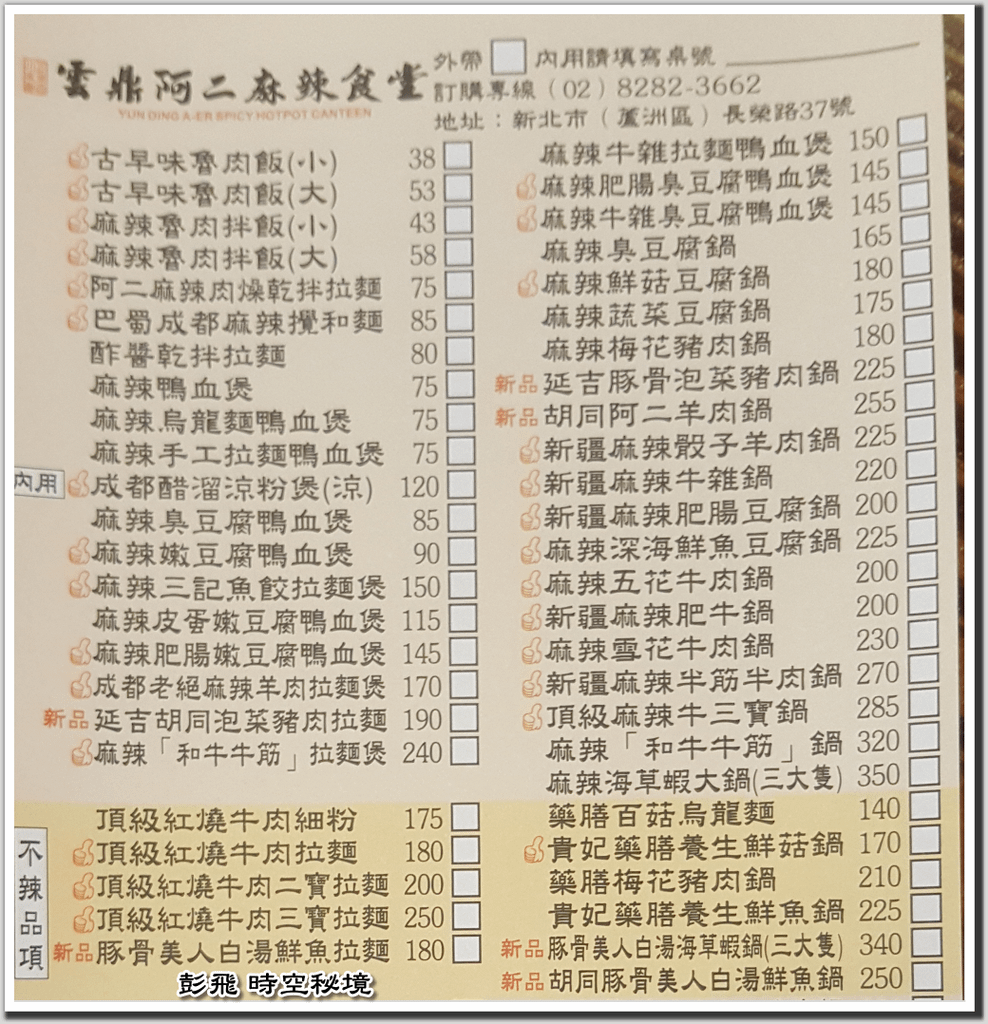 雲鼎阿二麻辣食堂
YUN DING A-ER SPICY HOTPOT CANTEEN
外帶 內用請填寫桌號
訂購專線（02）8282-3662
地址：新北市（蘆洲區）長榮路37號
古早味魯肉飯(小) 38
古早味魯肉飯(大) 53
麻辣魯肉拌飯(小) 43
麻辣魯肉拌飯(大) 58
阿二麻辣肉燥乾拌拉麵 75
巴蜀成都麻辣攪和麵 85
酢醬乾拌拉麵 80
麻辣鴨血煲 75
麻辣烏龍麵鴨血煲 75
麻辣手工拉麵鴨血煲 75
內用 成都醋溜涼粉煲(涼) 120
麻辣臭豆腐鴨血煲 85
麻辣嫩豆腐鴨血煲 90
麻辣三記魚餃拉麵煲 150
麻辣皮蛋嫩豆腐鴨血煲 115
麻辣肥腸嫩豆腐鴨血煲 145
成都老絕麻辣羊肉拉麵煲 170
新品 延吉胡同泡菜豬肉拉麵 190
麻辣「和牛牛筋」拉麵煲 240
麻辣牛雜拉麵鴨血煲 150
麻辣肥腸臭豆腐鴨血煲 145
麻辣牛雜臭豆腐鴨血煲 145
麻辣臭豆腐鍋 165
麻辣鮮菇豆腐鍋 180
麻辣蔬菜豆腐鍋 175
麻辣梅花豬肉鍋 180
新品 延吉豚骨泡菜豬肉鍋 225
新品 胡同阿二羊肉鍋 255
新疆麻辣骰子羊肉鍋 225
新疆麻辣牛雜鍋 220
新疆麻辣肥腸豆腐鍋 200
麻辣深海鮮魚豆腐鍋 225
麻辣五花牛肉鍋 200
新疆麻辣肥牛鍋 200
麻辣雪花牛肉鍋 230
新疆麻辣半筋半肉鍋 270
頂級麻辣牛三寶鍋 285
麻辣「和牛牛筋」鍋 320
麻辣海草蝦大鍋(三大隻) 350
不辣品項
頂級紅燒牛肉細粉 175
頂級紅燒牛肉拉麵 180
頂級紅燒牛肉二寶拉麵 200
頂級紅燒牛肉三寶拉麵 250
新品 豚骨美人白湯鮮魚拉麵 180
藥膳百菇烏龍麵 140
貴妃藥膳養生鮮菇鍋 170
藥膳梅花豬肉鍋 210
貴妃藥膳養生鮮魚鍋 225
新品 豚骨美人白湯海草蝦鍋(三大隻) 340
新品 胡同豚骨美人白湯鮮魚鍋 250
彭飛 時空秘境